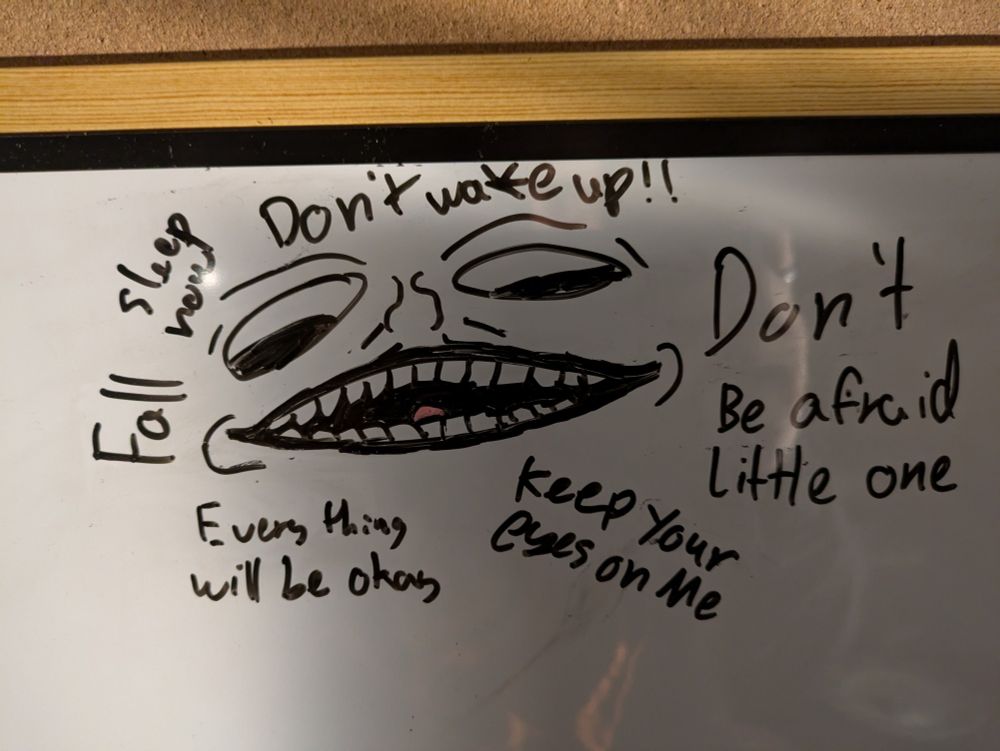 Don't wake up!!
Fall
sleep
now
Don't
Be afraid
little one
Every thing
will be okay
Keep Your
eyes on Me